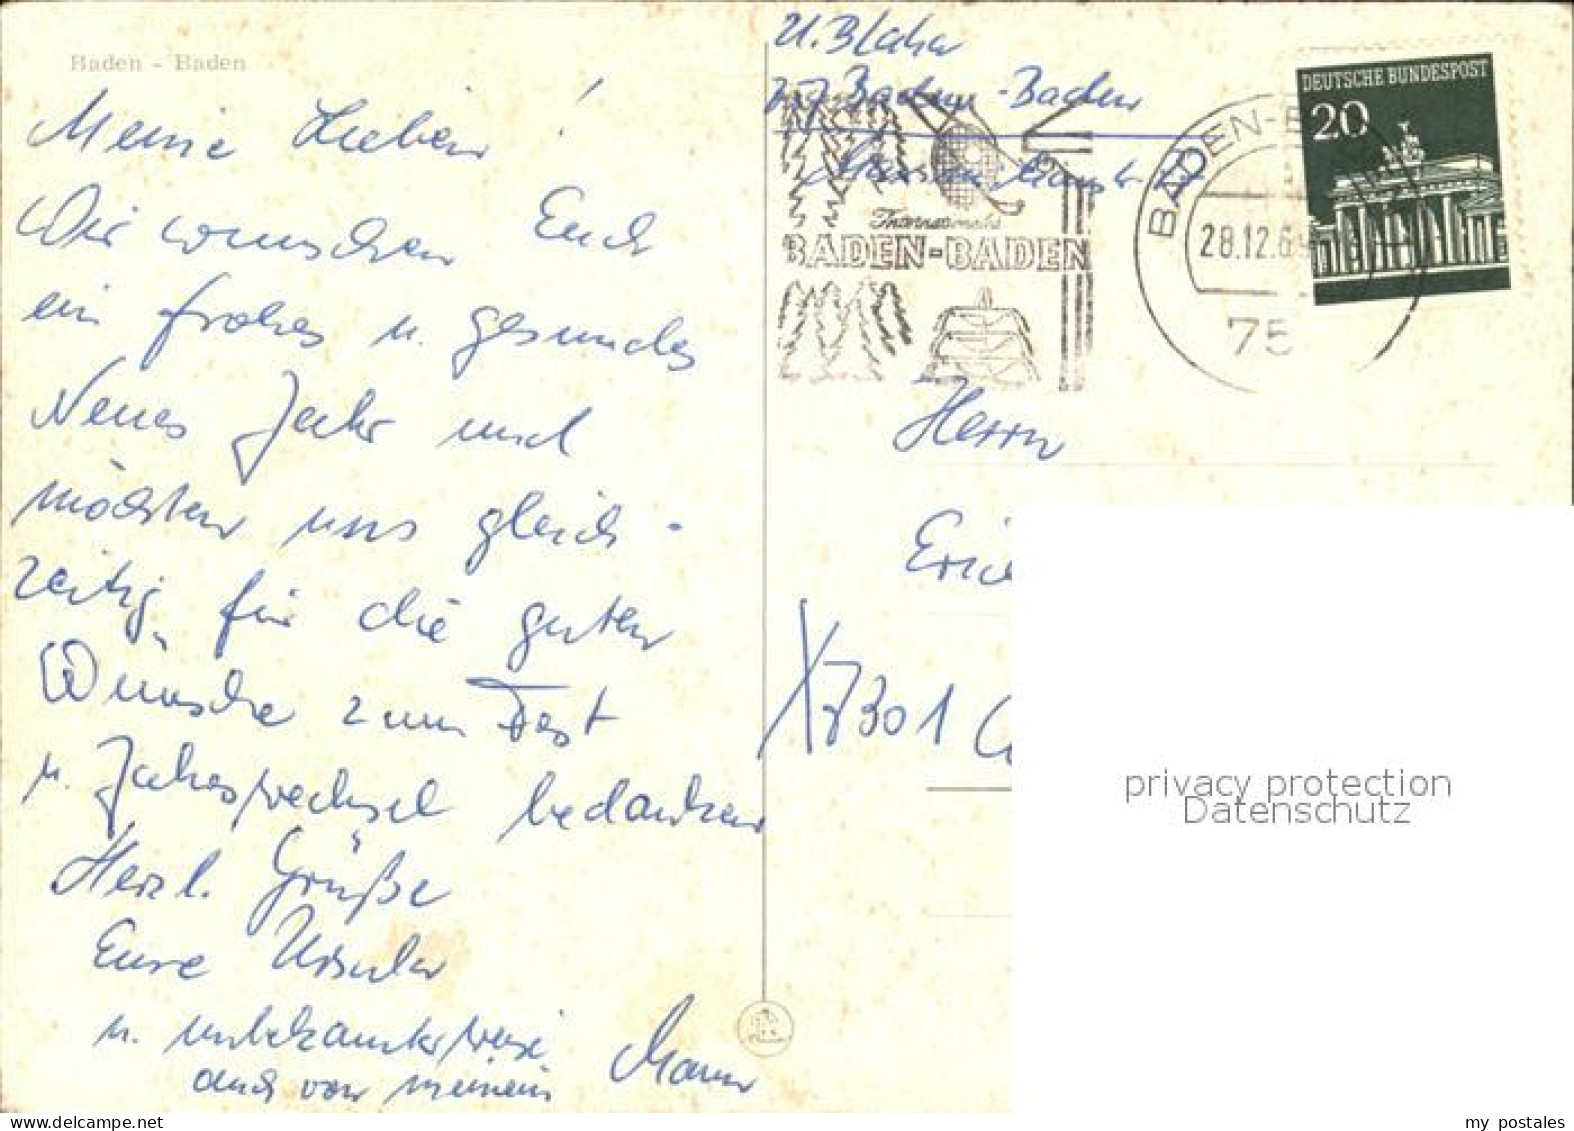 Baden - Baden
Meine Lieben!
Wir wünschen Euch
ein frohes u. gesundes
Neues Jahr und
möchten uns gleich-
zeitig für die guten
Wünsche zum Fest
u. Jahreswechsel bedanken
Herzl. Grüße
Eure Ursula
u. unbekannterweise
auch von meinem Mann
U. Blaha
757 Baden-Baden
BADEN-BADEN
BADEN-B
28.12.69
75
DEUTSCHE BUNDESPOST
20
Herrn
Eric
7301
privacy protection
Datenschutz
www.delcampe.net
my postales